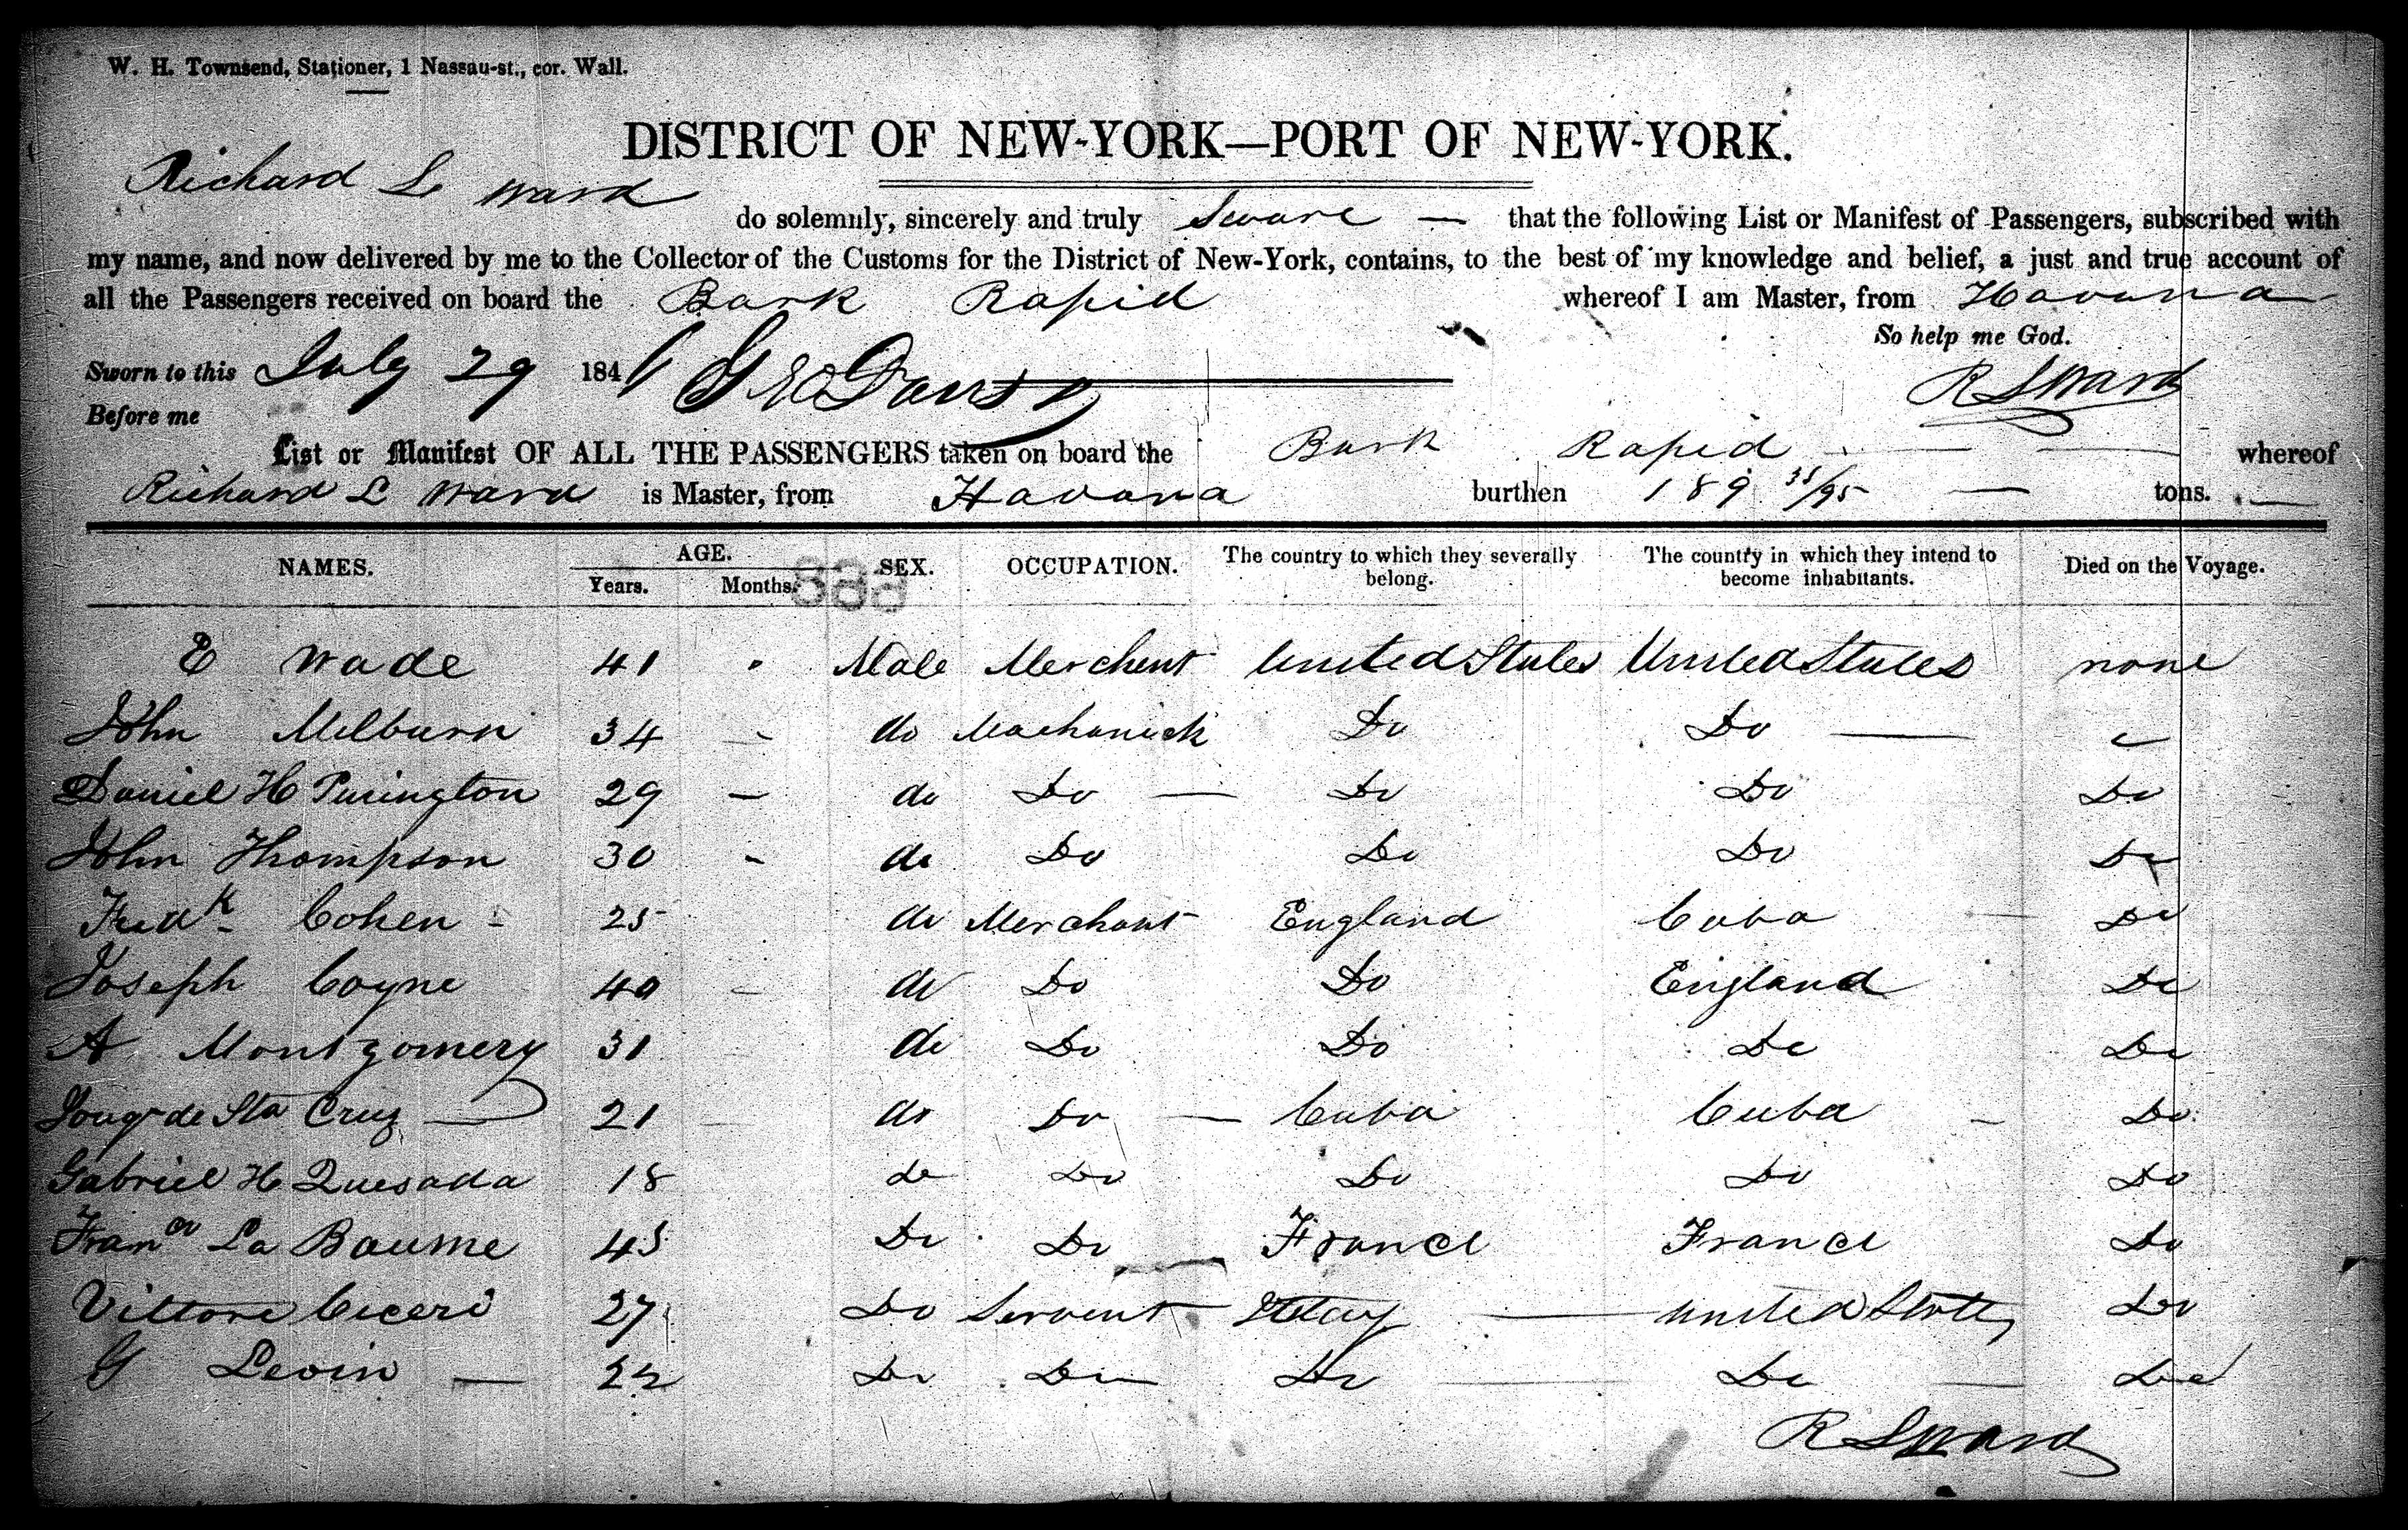 W. H. Townsend, Stationer, 1 Nassau-st., cor. Wall.
DISTRICT OF NEW-YORK—PORT OF NEW-YORK.
Richard L Ward
do solemnly, sincerely and truly Sware — that the following List or Manifest of Passengers, subscribed with
my name, and now delivered by me to the Collector of the Customs for the District of New-York, contains, to the best of my knowledge and belief, a just and true account of
all the Passengers received on board the Bark Rapid whereof I am Master, from Havana
So help me God.
Sworn to this July 29 184
R L Ward
Before me
List or Manifest OF ALL THE PASSENGERS taken on board the Bark Rapid — — whereof
Richard L Ward is Master, from Havana burthen 189 35/95 — tons. —
NAMES. AGE. SEX. OCCUPATION. The country to which they severally belong. The country in which they intend to become inhabitants. Died on the Voyage.
Years. Months.
E Wade 41 Male Merchent United States United States none
John Milburn 34 - do Mechanick Do Do —
Daniel H Purington 29 - do Do — Do Do Do
John Thompson 30 - do Do Do Do Do
Fredk Cohen - 25 do Merchant England Cuba Do
Joseph Coyne 40 - do Do Do England Do
A Montgomery 31 do Do Do Do Do
de Sta Cruz — 21 do Do — Cuba Cuba - Do
Gabriel H Quesada 18 do Do Do Do Do
Franco La Baume 45 Do Do France France Do
Vittore Ciceri 27 Do Servent Italy — United States Do
G Levin — 22 Do Do Do — Do — Do
R L Ward